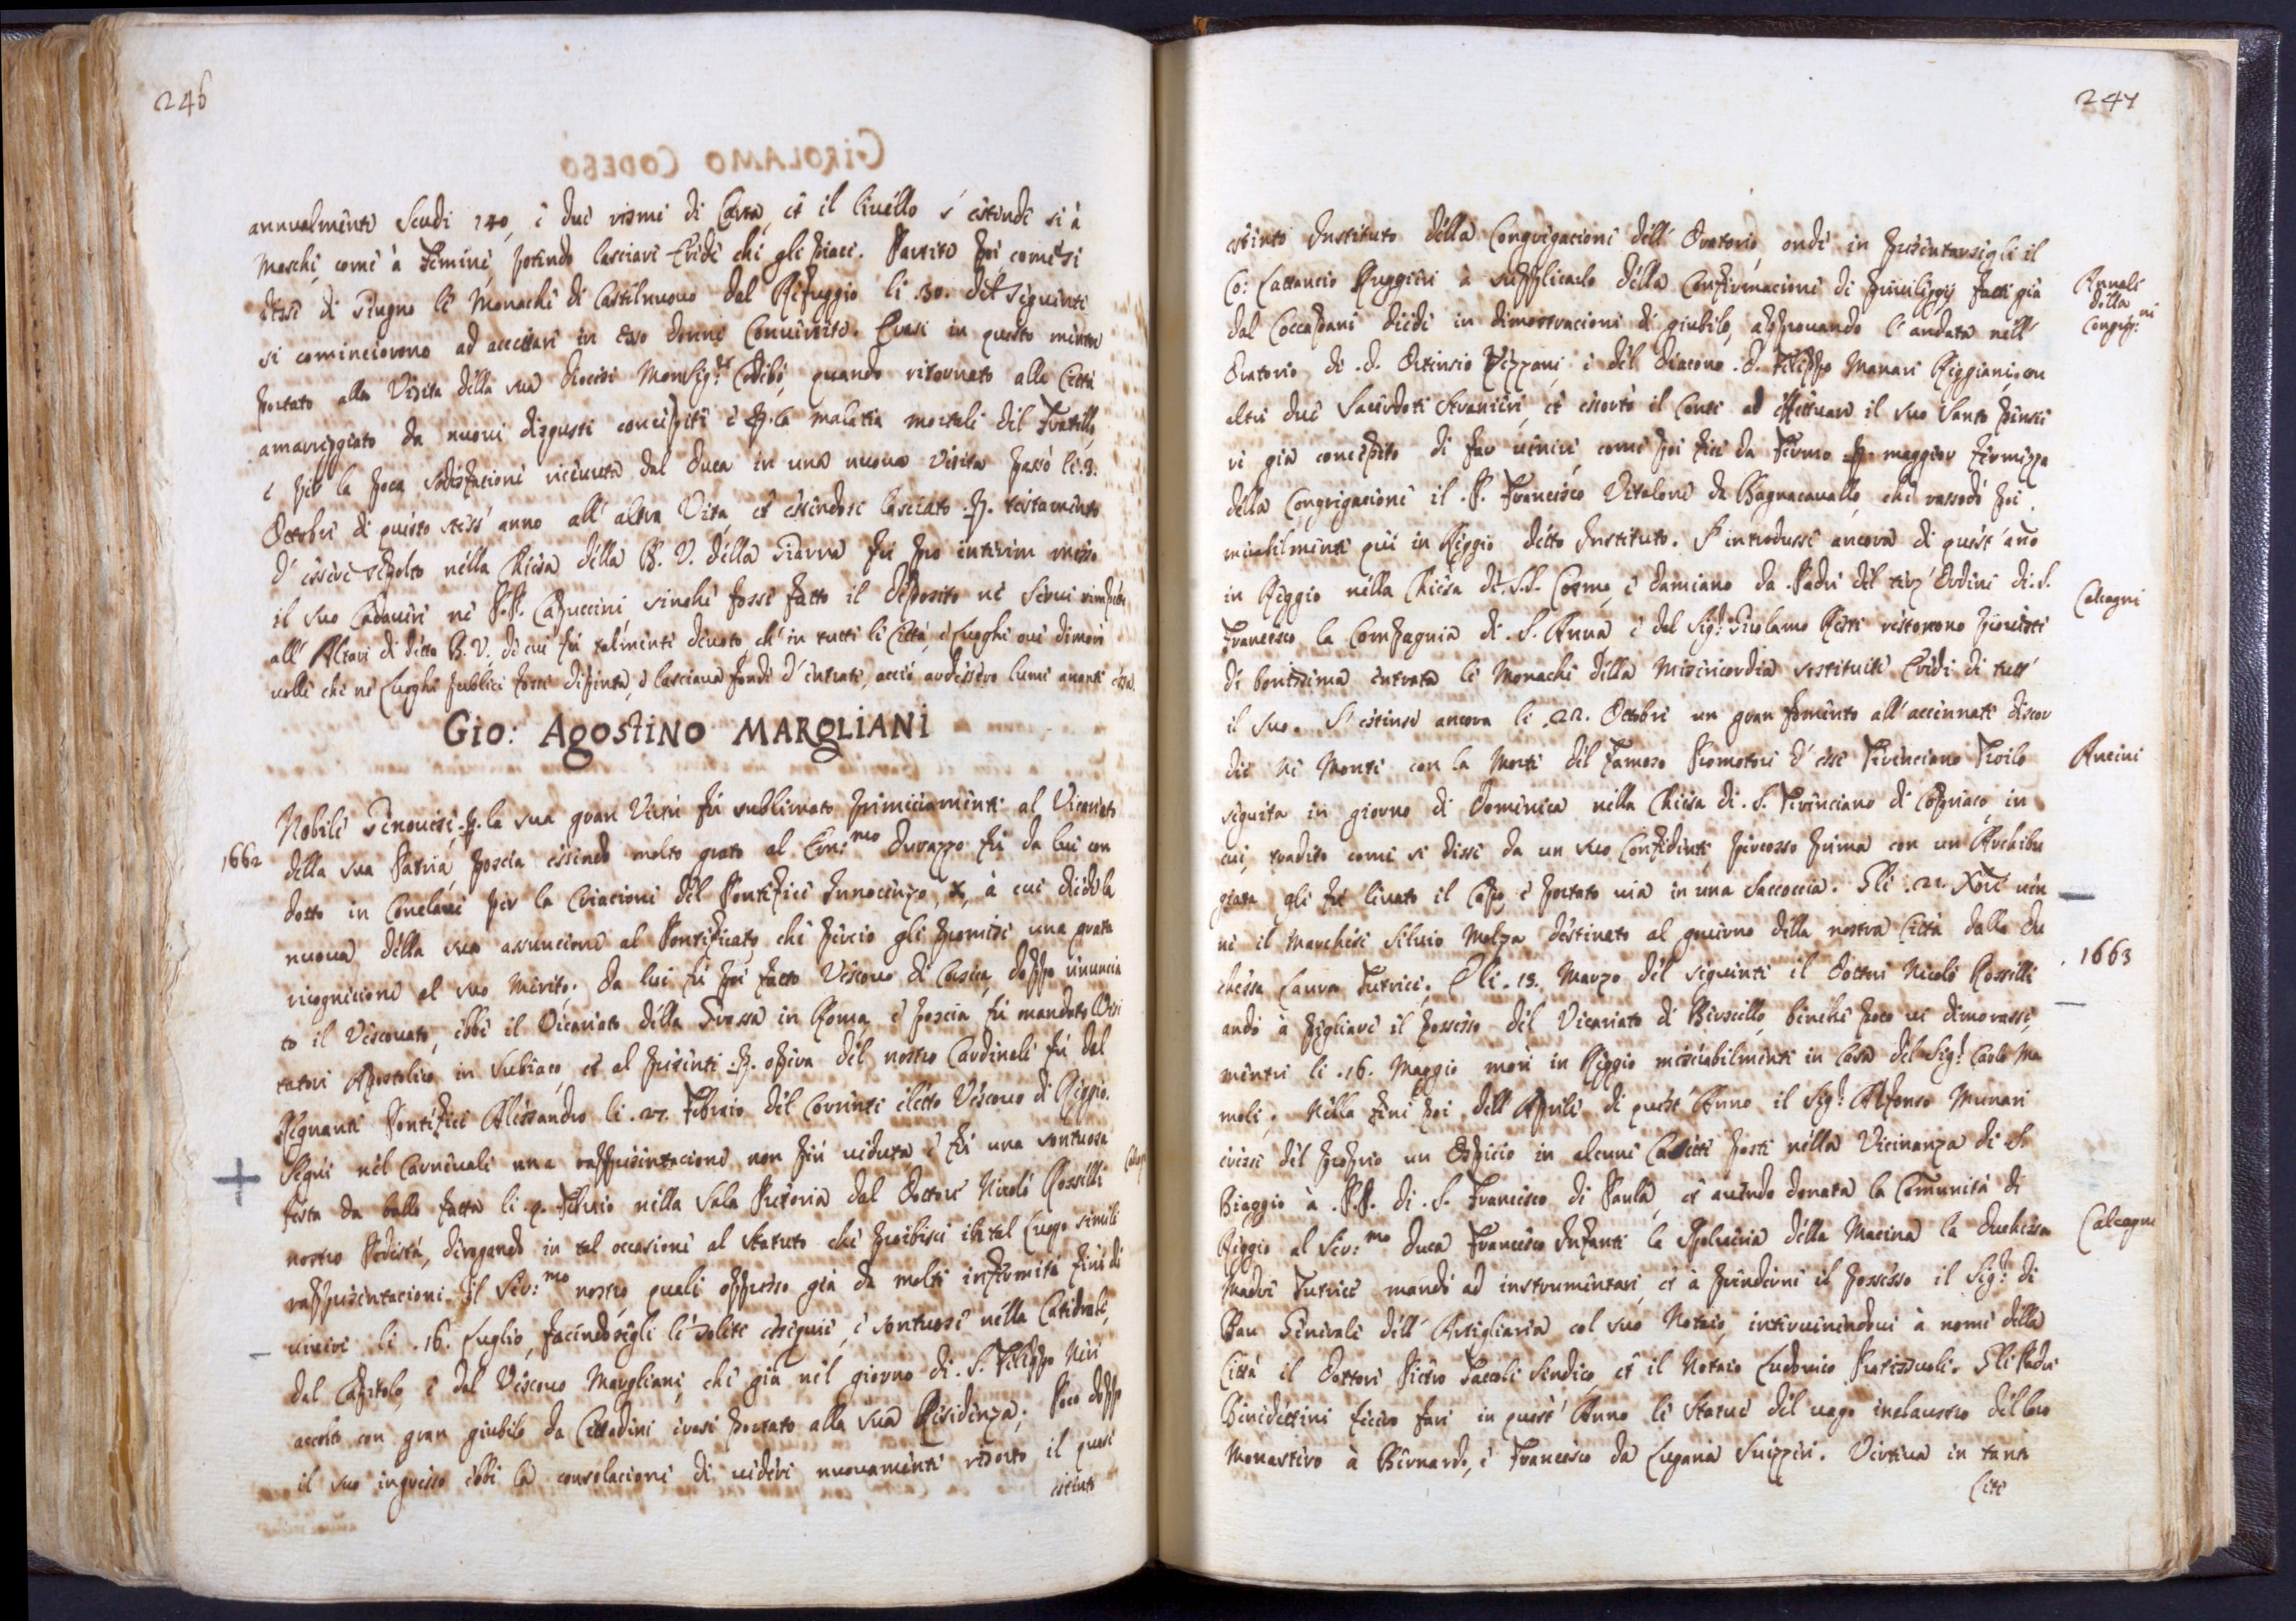 246
annualmente Scudi 240, è due risme di Carta, et il livello s' estende si à
Maschi, come à Femine, potendo lasciare Erede chi gli piace. Partite poi come si
disse di Giugno le Monache di Castelnuovo dal Rifuggio li .30. del seguente
si cominciorono ad accettare in esso donne Convertite. Erasi in questo mentre
portato alla Visita della sua diocesi MonSig:r Codebò, quando ritornato alla Città
amareggiato da nuovi disgusti concepiti è p. la malatia mortale del Fratello,
è per la poca sodisfacione riceuuta dal Duca in una nuova visita passò li .3.
Ottobre di questo stess' anno all' altra Vita, et essendosi lasciato .p. testamento
d' essere sepolto nella Chiesa della B. V. della Giarra fu pro interim messo
il suo Cadavere ne P.P. Capuccini, sinche fosse fatto il deposito ne Servi rimpeto
all' Altare di detta B. V. di cui fù talmente devoto, ch' in tutte le Città, è Luoghi oue dimorò
volle che ne Luoghi publici fosse dipinta, è lasciaua fondi d' entrate, acciò ardessero lumi auanti essa.
Gio: Agostino MARGLIANI
1662
Nobile Genovese, .p. la sua gran Virtù fù sublimato primieramente al Vicariato
della sua Patria, poscia essendo molto grato al Em:mo Durazzo fù da lui con
dotto in Conclave per la Creacione del Pontefice Innocenzo, X, à cui diede la
nuova della sua assuncione al Pontificato, che perciò gli promise una grata
ricognicione al suo merito; da lui fù poi fatto Vescouo di Corsica, doppo rinuncia
to il Vescouato, ebbe il Vicariato della Grossa in Roma, è poscia fù mandato Visi
tatore Apostolico in Subiaco, et al presente .p. opera del nostro Cardinale fù dal
Regnante Pontefice Alessandro li .27. Febraio del Corrente eletto Vescouo di Reggio.
Seguì nel Carneuale una rappresentacione non più veduta, è fù una sontuosa
festa da ballo fatta li .9. Febraio nella Sala Pretoria dal Dottore Nicolò Rosselli
nostro Podestà, derogando in tal occasione al Statuto che proibisce in tal Luogo simili
rappresentacioni. Il Ser:mo nostro, quale oppresso già da molte infermità finì di
vivere li .16. Luglio, facendosegli le solite essequie, è sontuose nella Catedrale,
dal Capitolo, è dal Vescouo Margliani, che già nel giorno di .S. Filippo Neri
accolto con gran giubilo da Cittadini erasi portato alla sua Residenza; Poco doppo
il suo ingresso ebbe la consolacione di vedere nuouamente risorto il quasi
estinto
247
estinto Instituto della Congregacione dell' Oratorio, onde in presentarsegli il
Co: Lattancio Ruggieri à supplicarlo della Confirmacione di Privileggij fatti già
dal Coccapani diede in dimostracione di giubilo, approuando l' andata nell'
Oratorio di .D. Ortensio Pezzani, è del Diacono .D. Filippo Manari Reggiani, con
altri due Sacerdoti Stranieri, et essortò il Conte ad effettuare il suo Santo pensie
ri già concepito di far venire, come poi fece da Fermo .p. maggior fermezza
della Congregacione il .P. Francesco Vitaloni da Bagnacauallo, che rassodò poi
mirabilmente qui in Reggio detto Instituto. S' introdusse ancora di quest' año
in Reggio nella Chiesa de .S.S. Cosma, è Damiano da Padri del terz' Ordine di .S.
Francesco la Compagnia di .S. Anna, è dal Sig: Girolamo Resti restorono prouiste
di bonissima entrata le Monache della Misericordia restituite Eredi di tutt'
il suo. S' estinse ancora li .22. Ottobre un gran fomento all' accennate discor
die ne Monti con la Morte del famoso Promotore d' esse Terenciano
seguita in giorno di Domenica nella Chiesa di .S. Terenciano di in
cui, tradito come si disse da un suo Confidente, percosso prima con un Archibu
giata, gli fù leuato il Capo, è portato via in una Saccoccia. Gli .21. Xbre uen
ne il Marchese Siluio Molza destinato al gouerno della nostra Città dalla Du
chessa Laura Tutrice. Gli .13. Marzo del seguente il Dottore Nicolò Rosselli
andò à pigliare il possesso del Vicariato di Brescello, benche poco ui dimorasse,
mentre li .16. Maggio morì in Reggio miserabilmente in Casa del Sig: Carlo Ma
moli. Nella fine poi dell' Aprile di quest' Anno il Sig: Alfonso Munari
eresse del proprio un Ospicio in alcune Casette poste nella Vicinanza di S.
Biaggio à P.P. di .S. Francesco di Paula, et auendo donata la Comunità di
Reggio al Ser:mo Duca Francesco Infante la della Macina la Duchessa
Madre Tutrice mandò ad instrumentare, et à prendere il possesso il Sig: di
Bau Generale dell' Artigliaria col suo Notaio, interuenendoui à nome della
Città il Dottore Pietro Saccoli Sindico, et il Notaio Ludouico Pratissuoli. Gli Padri
Benedettini fecero fare in quest' Anno le Statue del vago inclaustro del loro
Monastero à Bernardo, è Francesco da Lugana Suizzeri. Vertiua in tanto
Lite
Annali
della
Congreg:ni
Calcagni
Ancini
1663
Calcagni